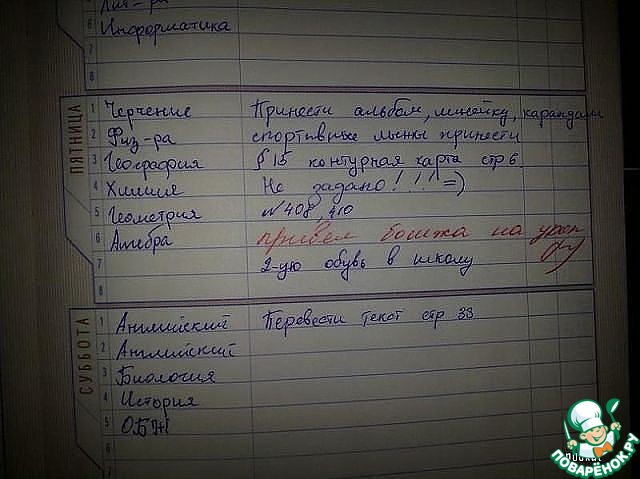 Лит-ра
6 Информатика
7
8
ПЯТНИЦА
1 Черчение Принести альбом, линейку, карандаш
2 Физ-ра спортивные штаны принести
3 География § 15 контурная карта стр 6.
4 Химия Не задано!!! =)
5 Геометрия №408, 410
6 Алгебра привел бомжа на урок
7 2-ую обувь в школу
8
СУББОТА
1 Английский Перевести текст стр 33
2 Английский
3 Биология
4 История
5 ОБЖ
6
7
ПОВАРЁНОК.РУ